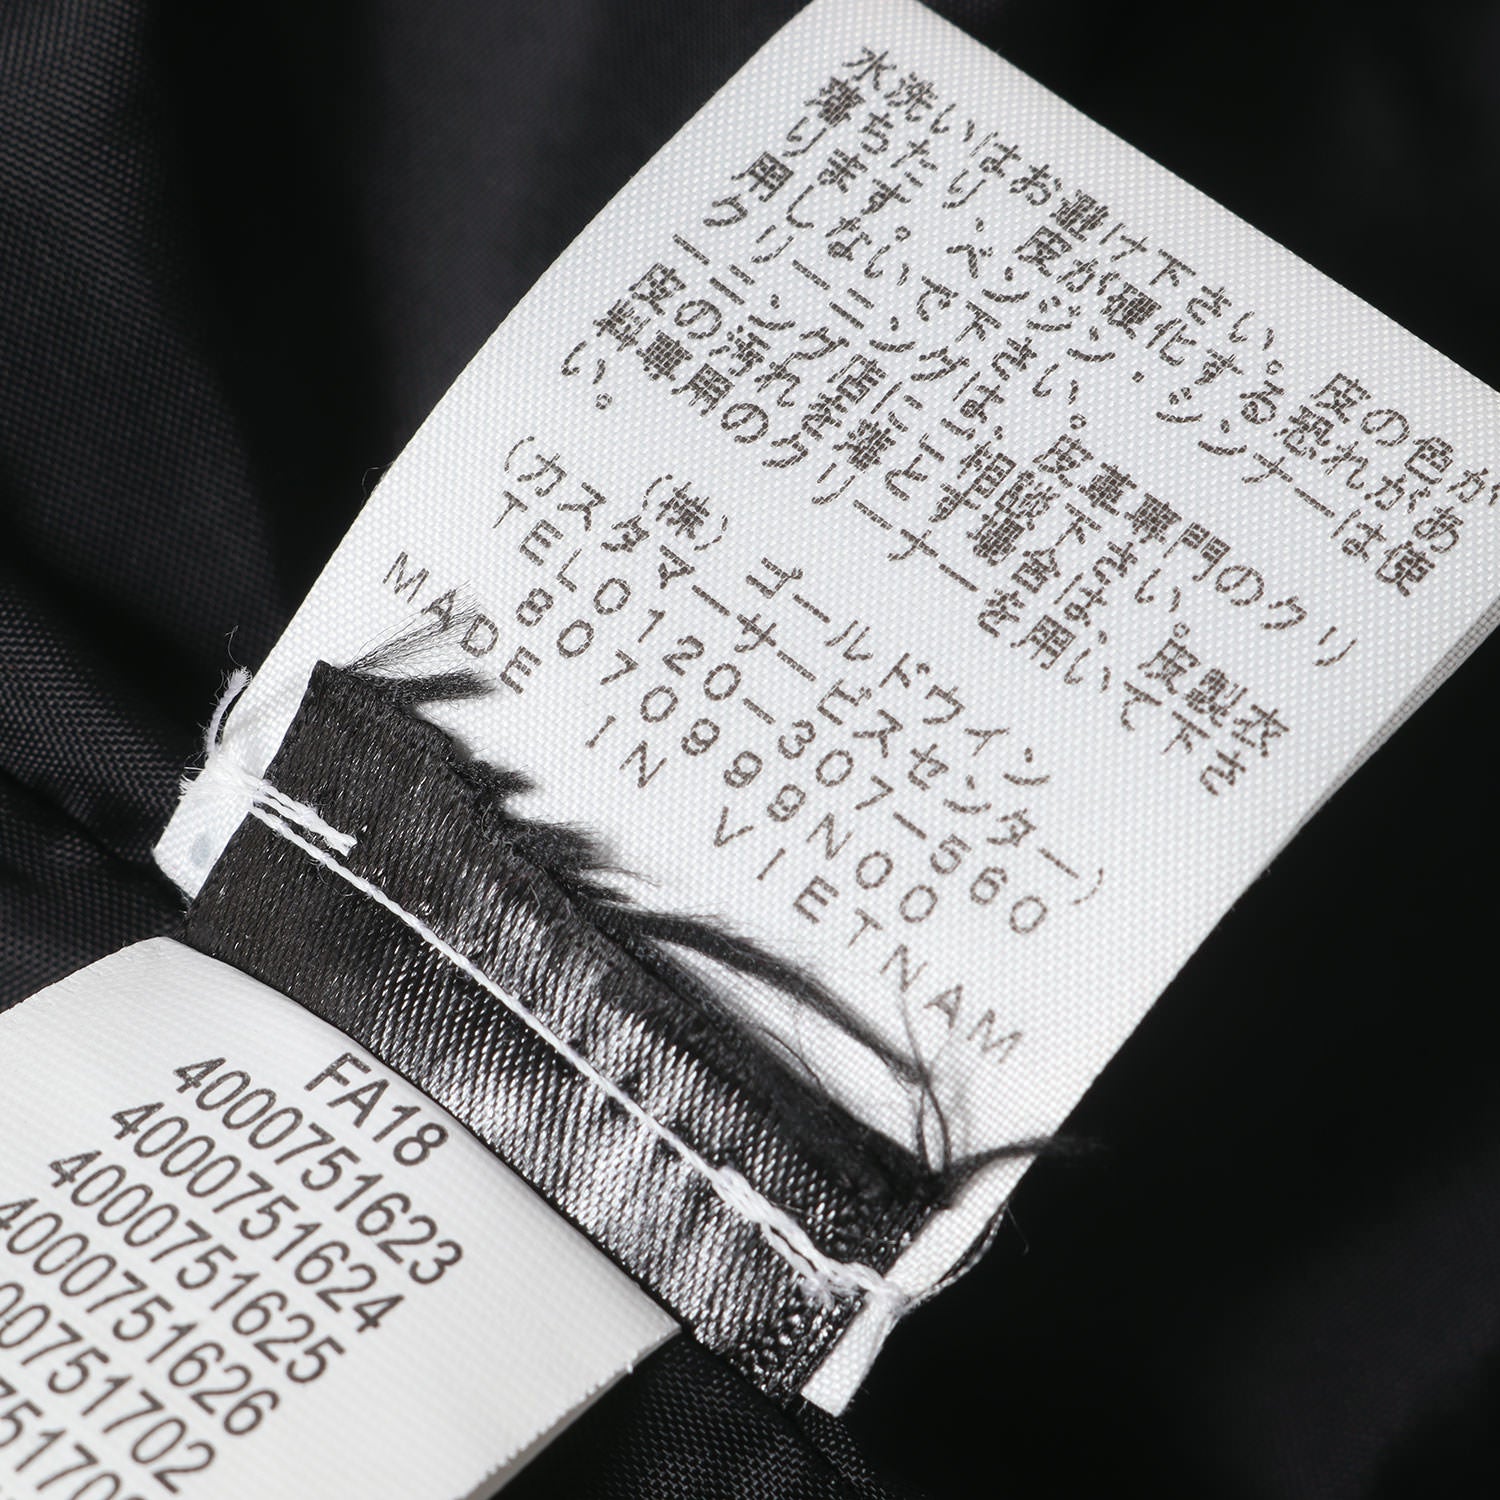 水洗いはお避け下さい。皮の色が
落ちたり、皮が硬化する恐れがあ
ります。ベンジン・シンナーは使
用しないで下さい。
クリーニングは、皮革専門のクリ
ーニング店にご相談下さい。
皮の汚れを落とす場合は、皮製衣
料専用のクリーナーを用いて下さ
い。
(株)ゴールドウイン
(カスタマーサービスセンター)
TEL0120-307-560
8070998N00
MADE IN VIETNAM
FA18
4000751623
4000751624
4000751625
4000751626
00751702